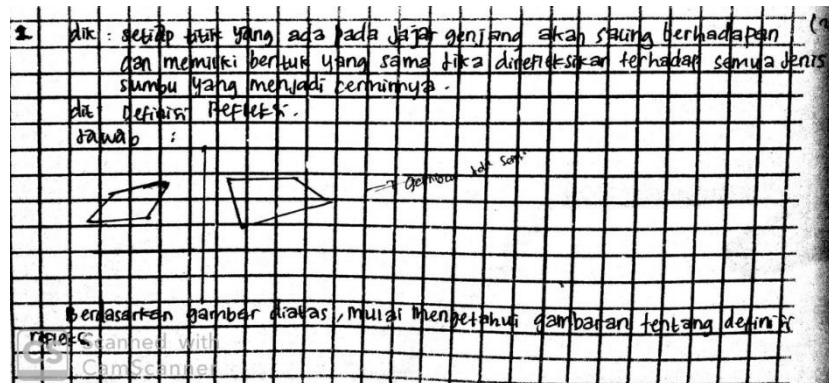 1 dik : setiap titik yang ada pada jajar genjang akan saling berhadapan
dan memiliki bentuk yang sama jika direfleksikan terhadap semua jenis
sumbu yang menjadi cerminnya.
dit : Definisi Refleksi.
Jawab :
→ gambar tdk sama
Berdasarkan gambar diatas, mulai mengetahui gambaran tentang definisi
refleksi
CS Scanned with
CamScanner